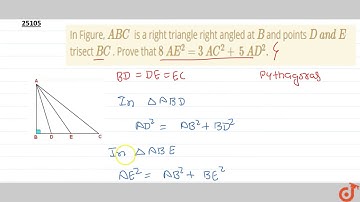 25105
In Figure, ABC is a right triangle right angled at B and points D and E
trisect BC . Prove that 8 AE² = 3 AC² + 5 AD².
BD = DE = EC
Pythagoras
In △ ABD
AD² = AB² + BD²
In △ ABE
AE² = AB² + BE²
A
B D E C
doubtnut